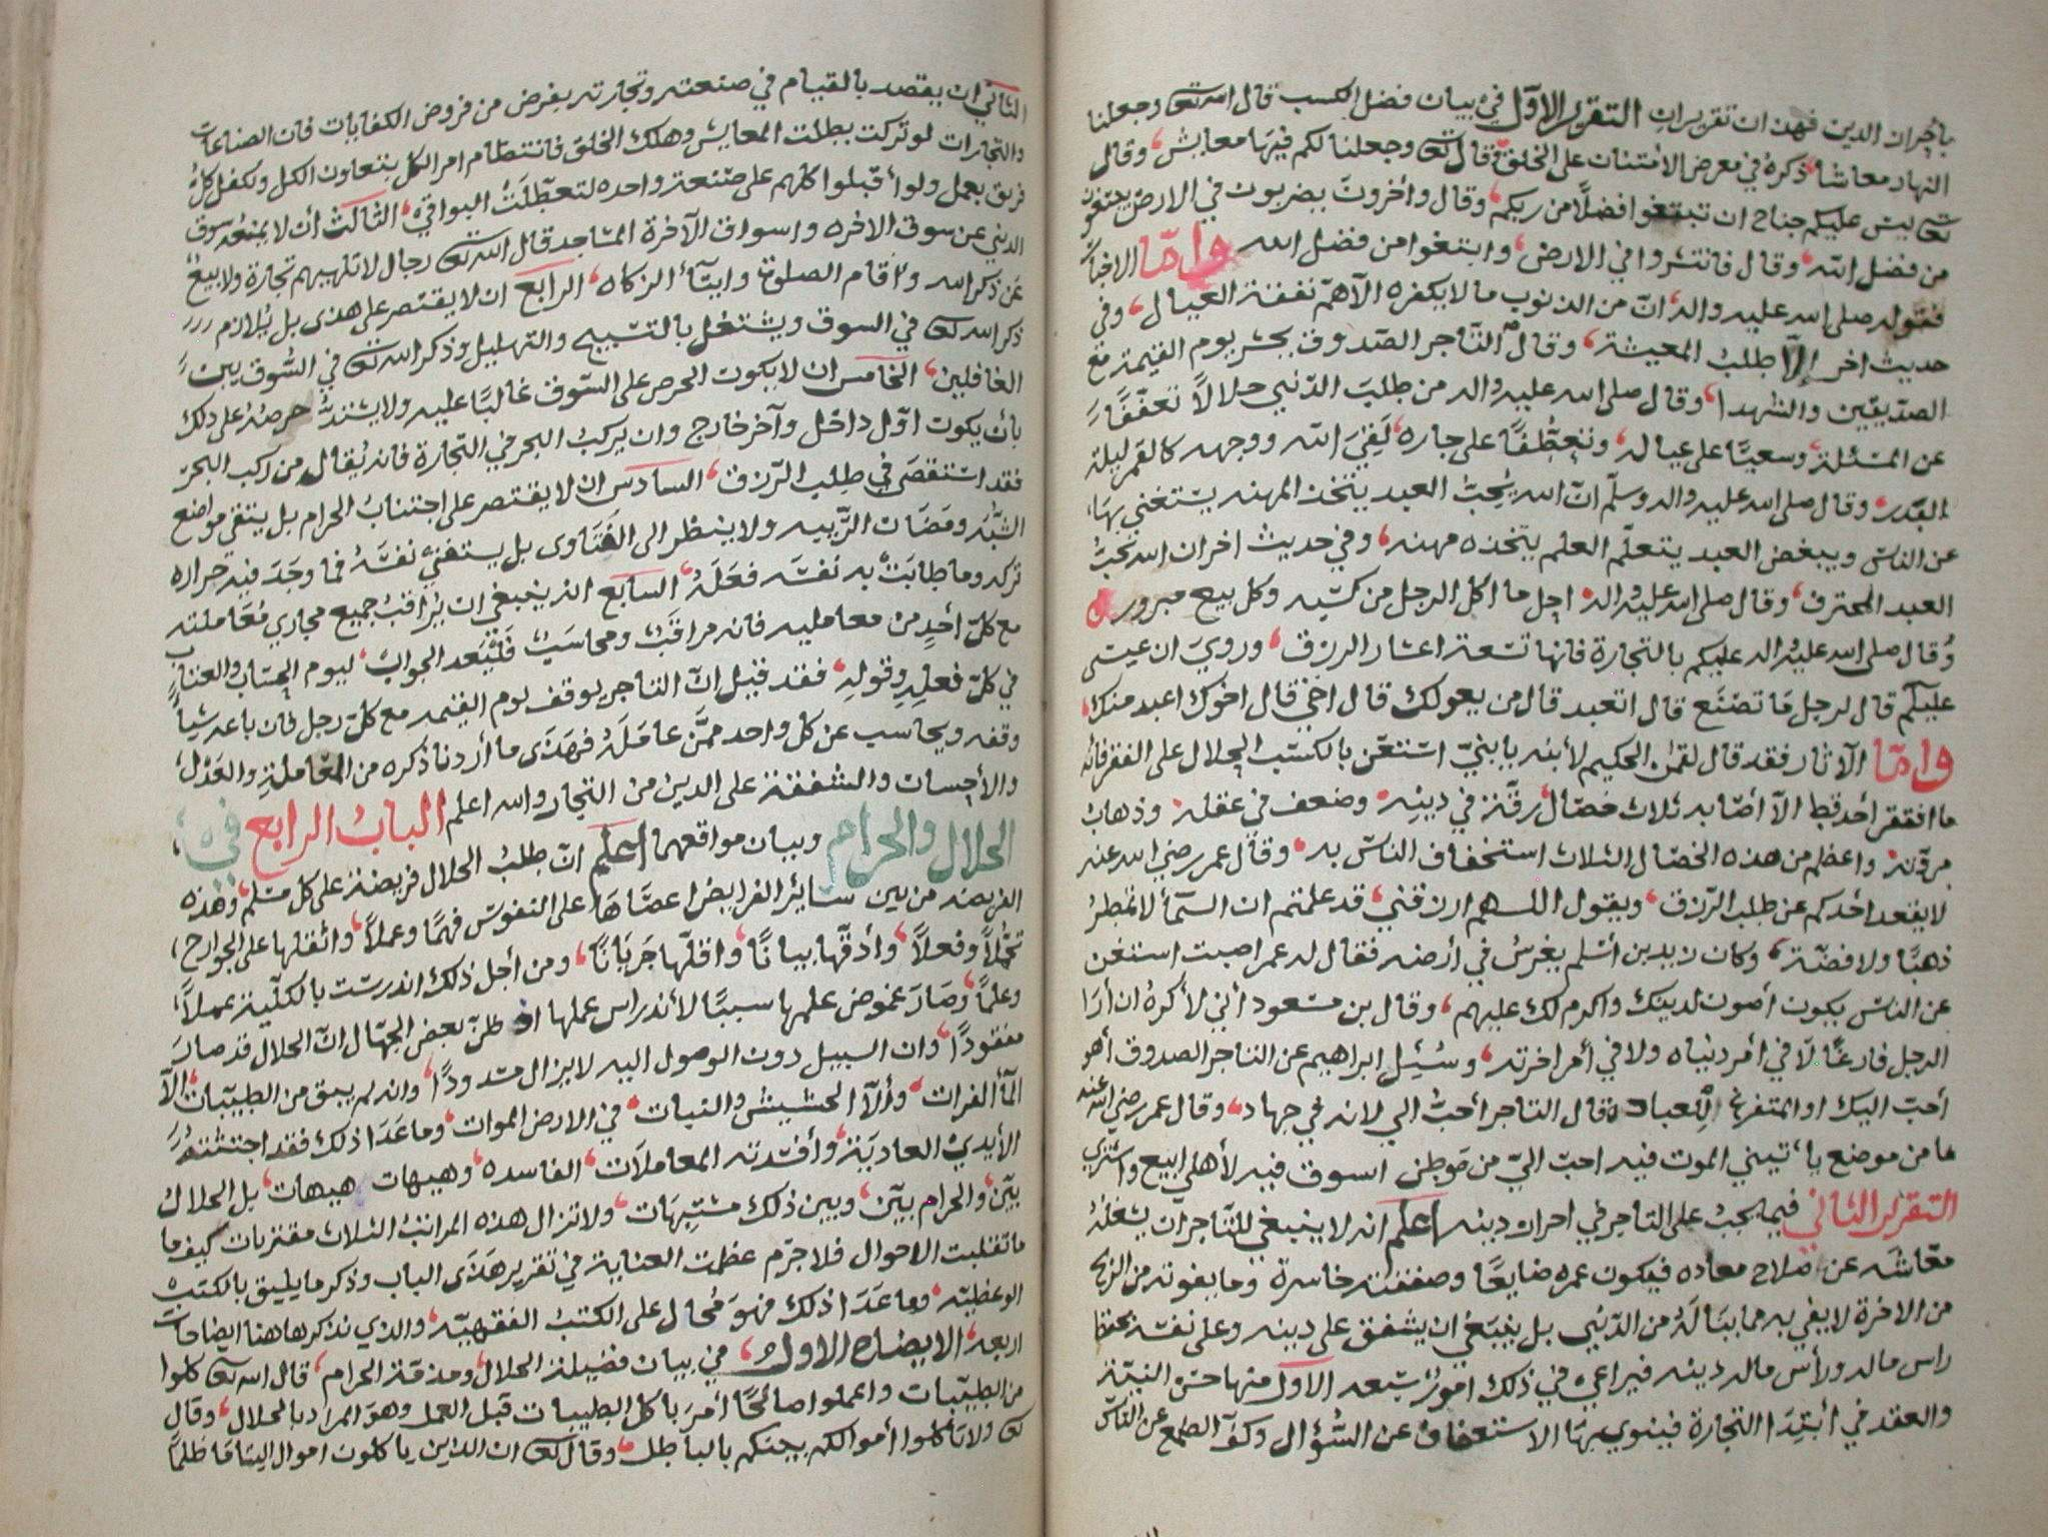 باجران الدين فهذان تقريران التقرير الاول في بيان فضل الكسب قال الله تعالى وجعلنا
النهار معاشا ذكره في معرض الامتنان على الخلق وقال تعالى وجعلنا لكم فيها معايش وقال
تعالى ليس عليكم جناح ان تبتغوا فضلا من ربكم وقال وآخرون يضربون في الارض يبتغون
من فضل الله وقال فانتشروا في الارض وابتغوا من فضل الله واما الاخبار
فقوله صلى الله عليه واله ان من الذنوب ما لا يكفره الا هم نفقة العيال وفي
حديث اخر الا طلب المعيشة وقال التاجر الصدوق يحشر يوم القيمة مع
الصديقين والشهدا وقال صلى الله عليه واله من طلب الدنيى حلالا تعففا
عن المسئلة وسعيا على عياله وتعطفا على جاره لقي الله ووجهه كالقمر ليلة
البدر وقال صلى الله عليه واله وسلم ان الله يحب العبد يتخذ المهنه يستغني بها
عن الناس ويبغض العبد يتعلم العلم يتخذه مهنه وفي حديث اخر ان الله يحب
العبد المحترف وقال صلى الله عليه واله احل ما اكل الرجل من كسبه وكل بيع مبرور
وقال صلى الله عليه واله عليكم بالتجارة فانها تسعة اعشار الرزق وروي ان عيسى
عليكم قال لرجل ما تصنع قال اتعبد قال من يعولك قال اخي قال اخوك اعبد منك
واما الآثار فقد قال لقمن الحكيم لابنه يا بني استغن بالكسب الحلال على الفقر فانه
ما افتقر احد قط الا اصابه ثلاث خصال رقة في دينه وضعف في عقله وذهاب
مروته واعظم من هذه الخصال الثلاث استخفاف الناس به وقال عمر رضي الله عنه
لا يقعد احدكم عن طلب الرزق ويقول اللهم ارزقني قد علمتم ان السمآ لا تمطر
ذهبا ولا فضة وكان زيد بن اسلم يغرس في ارضه فقال له عمر اصبت استغن
عن الناس يكون اصون لدينك واكرم لك عليهم وقال بن مسعود اني لأكره ان أرا
الرجل فارغا لا في امر دنياه ولا في أمر اخرته وسئل ابراهيم عن التاجر الصدوق أهو
أحب اليك او المتفرغ للعباده قال التاجر أحب الي لانه في جهاد وقال عمر رضي الله عنه
ما من موضع يأتيني الموت فيه احب الي من موطن اسوق فيه لأهلي ابيع واشتري
التقرير الثاني فيما يجب على التاجر في احراز دينه اعلم انه لا ينبغي للتاجر ان يشغله
معاشه عن صلاح معاده فيكون عمره ضايعا وصفقته خاسرة وما يفوته من الربح
من الاخرة لا يفي به ما يناله من الدنيى بل ينبغي ان يشفق على دينه وعلى نفسه بحفظ
راس ماله ورأس ماله دينه فيراعي في ذلك امور سبعه الاول منها حسن النية
والعقد في أبتدا التجارة فينوي بها الاستعفاف عن السؤال وكف الطمع عن الناس
الثاني ان يقصد بالقيام في صنعته وتجارته بفرض من فروض الكفايات فان الصناعات
والتجارات لو تركت بطلت المعايش وهلك الخلق فانتظام امر الكل بتعاون الكل وتكفل كل
فريق بعمل ولو أقبلوا كلهم على صنعة واحده لتعطلت البواقي الثالث أن لا يمنعه سوق
الدنيى عن سوق الاخره واسواق الآخرة المساجد قال الله تعالى رجال لا تلهيهم تجارة ولا بيع
عن ذكر الله واقام الصلوة وايتآء الزكاه الرابع ان لا يقتصر على هذى بل يلازم
ذكر الله تعالى في السوق ويشتغل بالتسبيح والتهليل وذكر الله تعالى في السوق بين
الغافلين الخامس ان لا يكون الحرص على السوق غالبا عليه ولا يشتد حرصه على ذلك
بأن يكون اول داخل وآخر خارج وان يركب البحر في التجارة فانه يقال من ركب البحر
فقد استقصى في طلب الرزق السادس ان لا يقتصر على اجتناب الحرام بل يتقي مواضع
الشبه ومضان الريبه ولا ينظر الى الفتاوى بل يستفتي نفسه فما وجد فيه حزازه
تركه وما طابت به نفسه فعله السابع انه ينبغي ان يراقب جميع مجاري معاملته
مع كل أحد من معامليه فانه مراقب ومحاسب فليعد الجواب ليوم الحساب والعتاب
في كل فعله وقوله فقد قيل ان التاجر يوقف يوم القيمه مع كل رجل كان باعه شيأ
وقفه ويحاسب عن كل واحد ممن عامله فهذى ما أردنا ذكره من المعاملة والعدل
والاحسان والشفقة على الدين من التجار والله اعلم الباب الرابع في
الحلال والحرام وبيان مواقعهما اعلم ان طلب الحلال فريضة على كل مسلم وهذه
الفريضه من بين سائر الفرايض اعصاها على النفوس فهما وعملا واثقلها على الجوارح
تحملا وفعلا وأدقها بيانا واقلها جريانا ومن أجل ذلك اندرست بالكلية عملا
وعلما وصار غموض علمها سببا لأندراس عملها اذ ظن بعض الجهال ان الحلال قد صار
مفقودا وان السبيل دون الوصول اليه لا يزال مسدودا وانه لم يبق من الطيبات الا
المآ الفرات وألا الحشيش والنبات في الارض الموات وما عدا ذلك فقد اجتثته
الأيدي العادية وأفسدته المعاملات الفاسده وهيهات هيهات بل الحلال
بين والحرام بين وبين ذلك مشتبهات ولا تزال هذه المراتب الثلاث مقترنات كيف ما
ما تقلبت الاحوال فلا جرم عظمت العناية في تقرير هذى الباب وذكر ما يليق بالكتب
الوعظيه وما عدا ذلك فهو محال على الكتب الفقهيه والذي نذكر هاهنا ايضاحات
اربعه الايضاح الاول في بيان فضيلة الحلال ومذمة الحرام قال الله تعالى كلوا
من الطيبات واعملوا صالحا أمر باكل الطيبات قبل العمل وهو المراد بالحلال وقال
تعالى ولا تأكلوا أموالكم بينكم بالباطل وقال تعالى ان الذين ياكلون اموال اليتاما ظلما